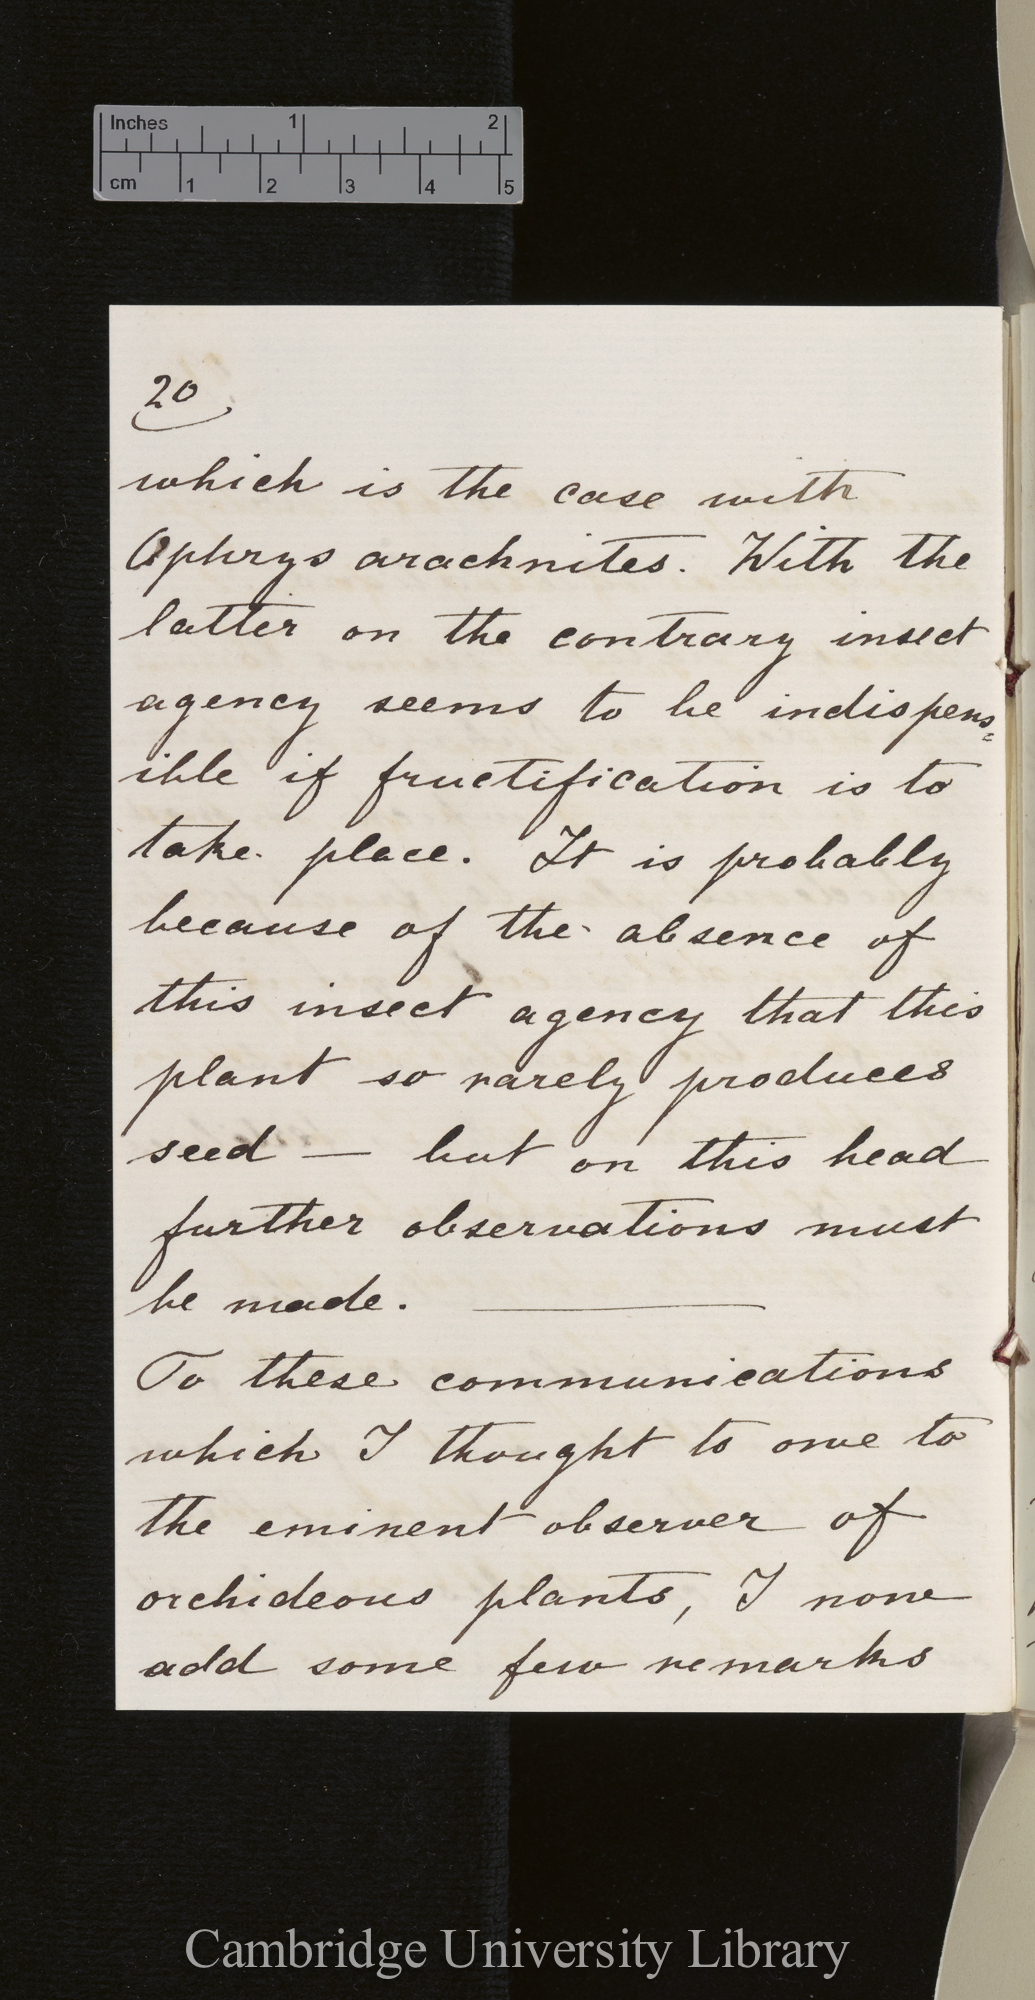 Inches 1 2
cm 1 2 3 4 5
20
which is the case with
Ophrys arachnites. With the
latter on the contrary insect
agency seems to be indispens=
ible if fructification is to
take place. It is probably
because of the absence of
this insect agency that this
plant so rarely produces
seed — but on this head
further observations must
be made. —
To these communications
which I thought to owe to
the eminent observer of
orchideous plants, I none
add some few remarks
Cambridge University Library